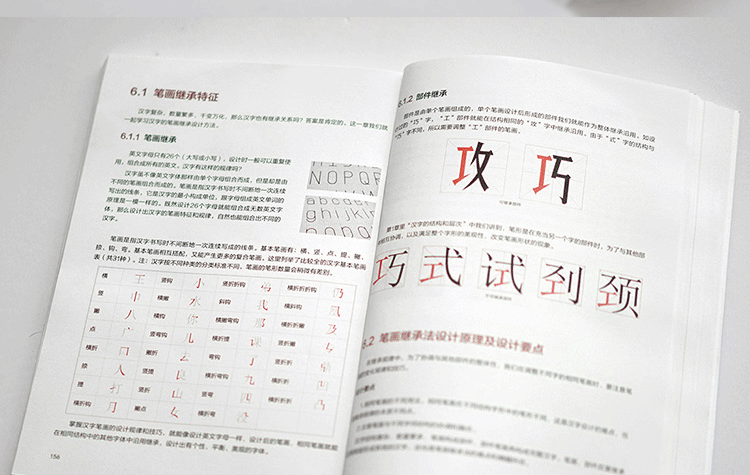 6.1 笔画继承特征
汉字繁杂，数量繁多，千变万化，那么汉字也有继承关系吗？答案是肯定的。这一章我们就
一起学习汉字的笔画继承设计方法。
6.1.1 笔画继承
英文字母只有26个（大写或小写），设计时一般可以重复使
用，组合成所有的英文。汉字有这样的规律吗？
汉字虽不像英文字体那样由单个字母组合而成，但是却是由
不同的笔画组合而成的。笔画是指汉字书写时不间断地一次连续
写出的线条，它是汉字的最小构成单位，跟字母组成英文单词的
原理是一模一样的。既然设计26个字母就能组合成无数英文字
体，那么设计出汉字的笔画特征和规律，自然也能组合出不同的
汉字。
NOPQR
abcdefg
ijklm
笔画是指汉字书写时不间断地一次连续写成的线条。基本笔画有：横、竖、点、提、撇、
捺、钩、弯。基本笔画相互搭配，又能产生更多的复合笔画，这里列举了比较全的汉字基本笔画
表（共31种）。注：汉字按不同种类的分类标准不同，笔画的笔形数量会稍微有差别。
横 王 竖钩 小 竖折折钩 横折折折钩 仍
竖 中 横撇 水 斜钩 我 横斜钩 凤
撇 八 横钩 你 横撇弯钩 那 横折折撇 及
点 广 竖弯钩 儿 横折提 课 竖折撇 专
横折 口 撇折 云 弯钩 了 竖折折
捺 人 竖提 良 横折弯钩 九 横折折折
提 打 竖折 山 竖弯 四 横折折 凹
横折钩 月 撇点 女 横折弯 没
掌握汉字笔画的设计规律和技巧，就能像设计英文字母一样，设计后的笔画，相同笔画就能
在相同结构中的其他字体中沿用继承，设计出有个性、平衡、美观的字体。
156
6.1.2 部件继承
部件是由单个笔画组成的，单个笔画设计后形成的部件我们就能作为整体继承沿用。如设
计过的“巧”字，“工”部件就能在结构相同的“攻”字中继承沿用。由于“式”字的结构与
“巧”字不同，所以需要调整“工”部件的笔画。
攻 巧
可继承部件
第1章里“汉字的结构和层次”中我们讲到，笔形是在充当另一个字的部件时，为了与其他部
件相互协调，以及满足整个字形的美观性，改变笔画形状的现象。
巧 式 试 刭 颈
不可继承部件
6.2 笔画继承法设计原理及设计要点